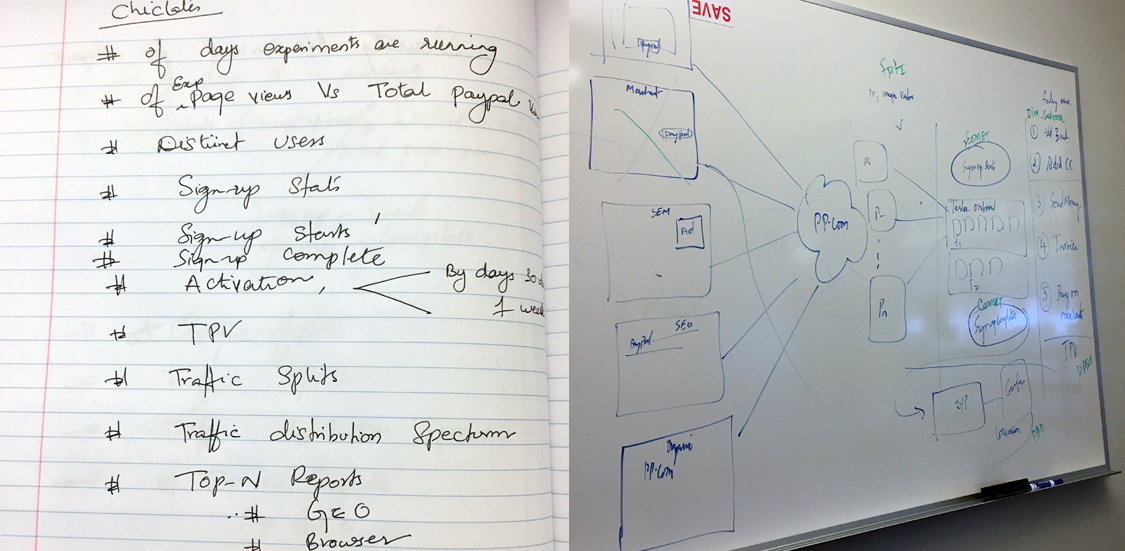 Chiclets
# of days experiments are running
# of Exp Page views Vs Total Paypal
# Distinct users
# Sign-up Stats
# Sign-up Starts,
# Sign-up Complete
# Activation,
By days 30
1 week
# TPV
# Traffic Splits
# Traffic distribution Spectrum
# Top-N Reports
# GEO
# Browser
SAVE
Merchant
Paypal
SEM
Ad
SEO
Paypal
Organic
PP.com
PP.com
fptI
P1
P2
Pn
COMET
Sign up Starts
t1
t2
Comet
Sign up Complete
① Add Bank
② Add CC
③ Send Money
④ Invoice
⑤ Buy on merchant
TPV